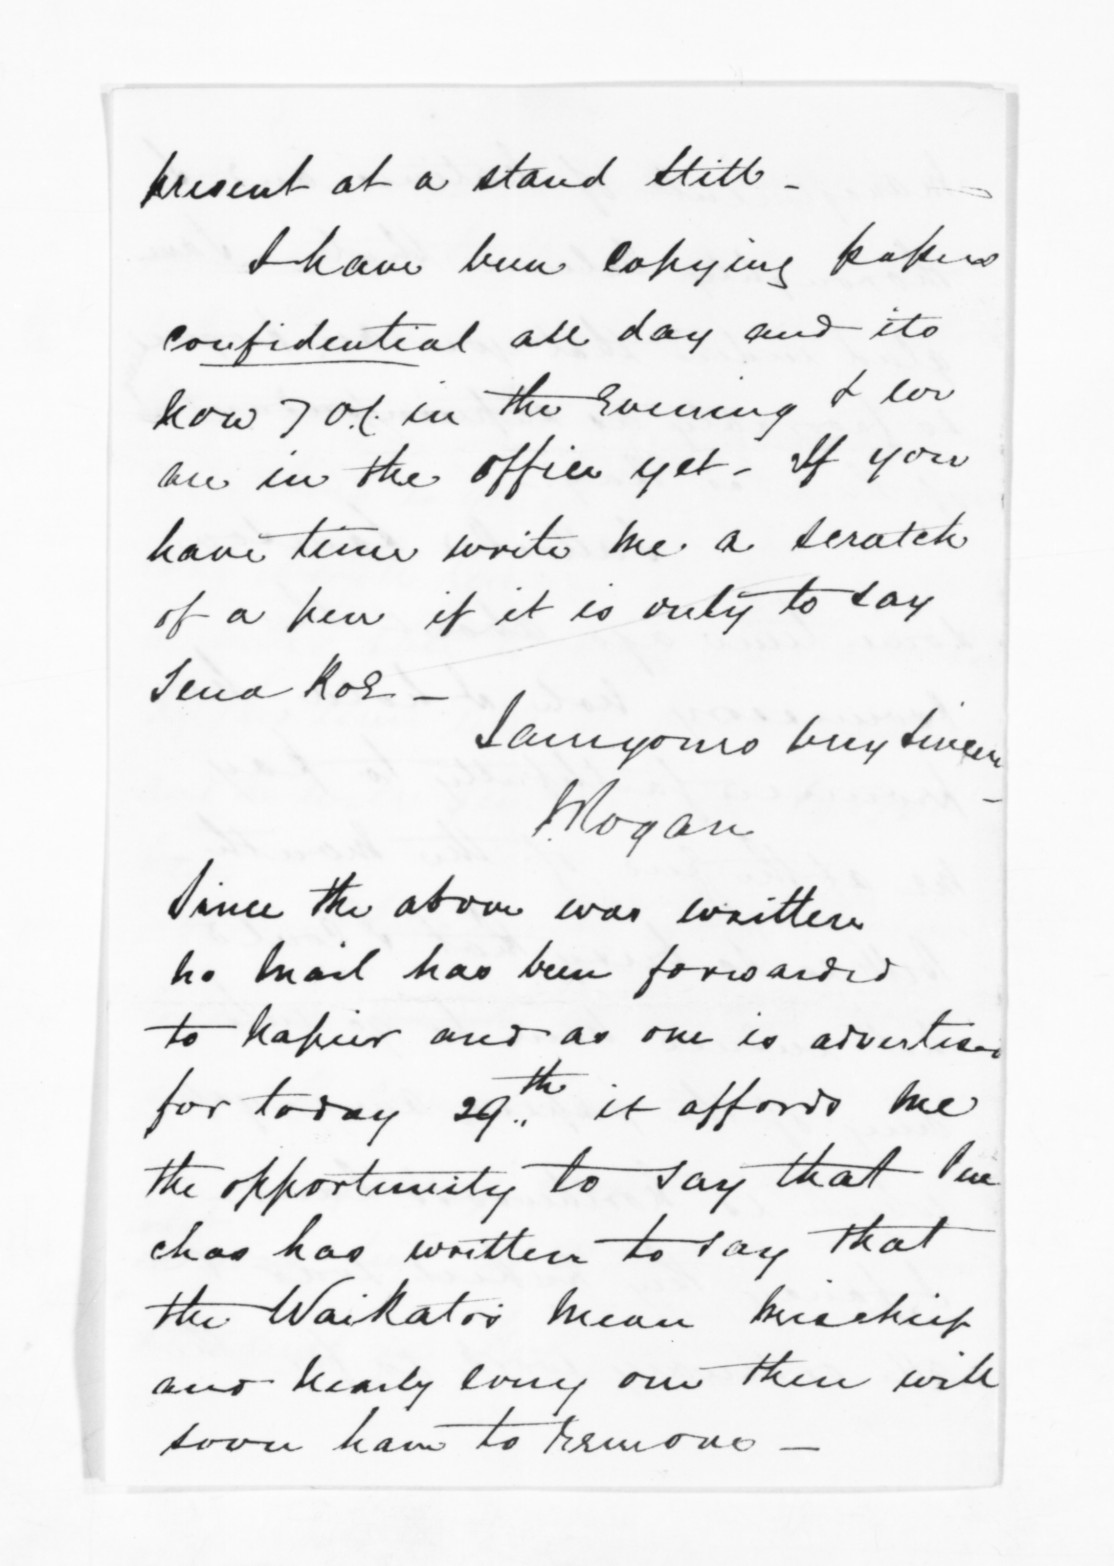 present at a stand still -
I have been copying papers
confidential all day and its
now 7 o/c in the Evening & we
are in the office yet - If you
have time write me a scratch
of a pen if it is only to say
Tena Koe -
I am yours very Sincere
J Rogan
Since the above was written
no mail has been forwarded
to Napier and as one is advertised
for today 29th it affords me
the opportunity to say that
has written to say that
the Waikatos mean mischief
and nearly every one there will
soon have to remove -